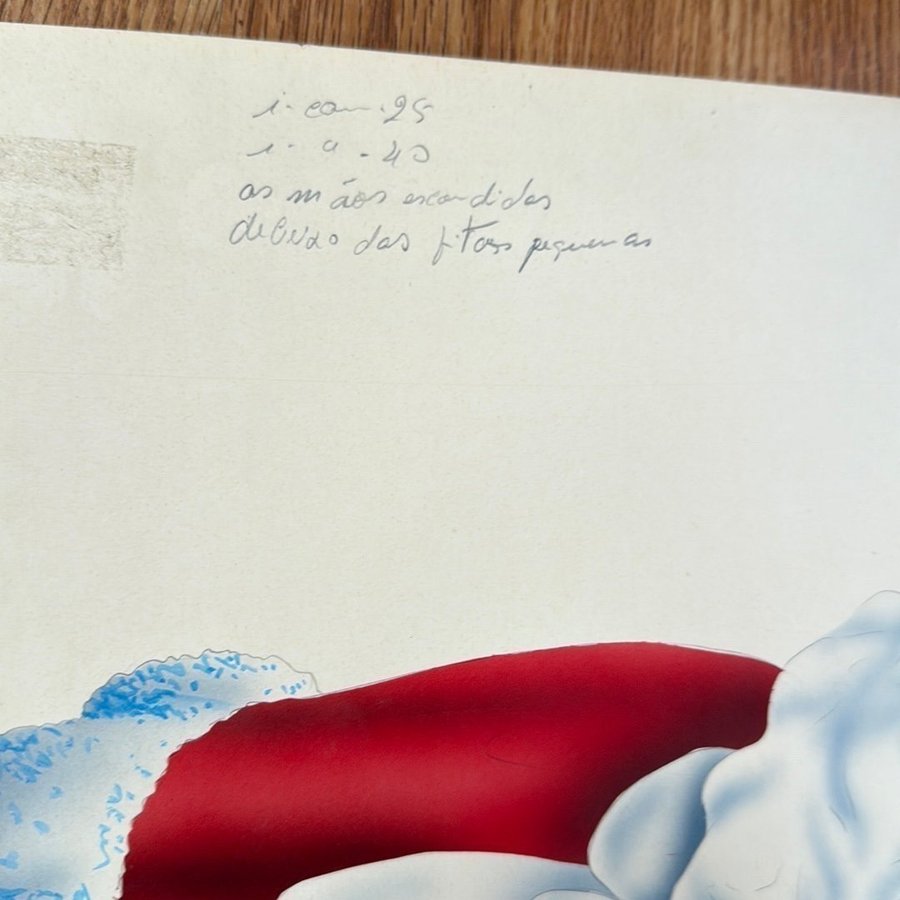 i - com - 25
i - a - 40
as mãos escondidas
debaixo das fitas pequenas